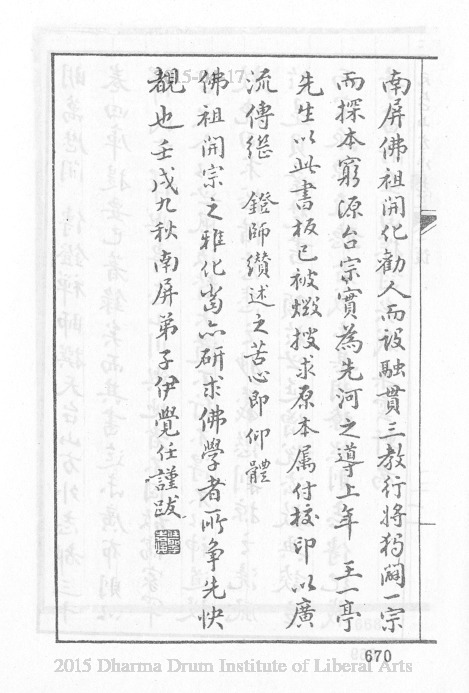 南屏佛祖開化勸人而設融貫三教行將獨闢一宗
而探本窮源台宗實為先河之導上年 王一亭
先生以此書板已被燬搜求原本属付校印以廣
流傳繼 鐙師纘述之苦心即仰體
佛祖開宗之雅化當亦研求佛學者所爭先快
覩也壬戌九秋南屏弟子伊覺任謹跋
670
2015 Dharma Drum Institute of Liberal Arts